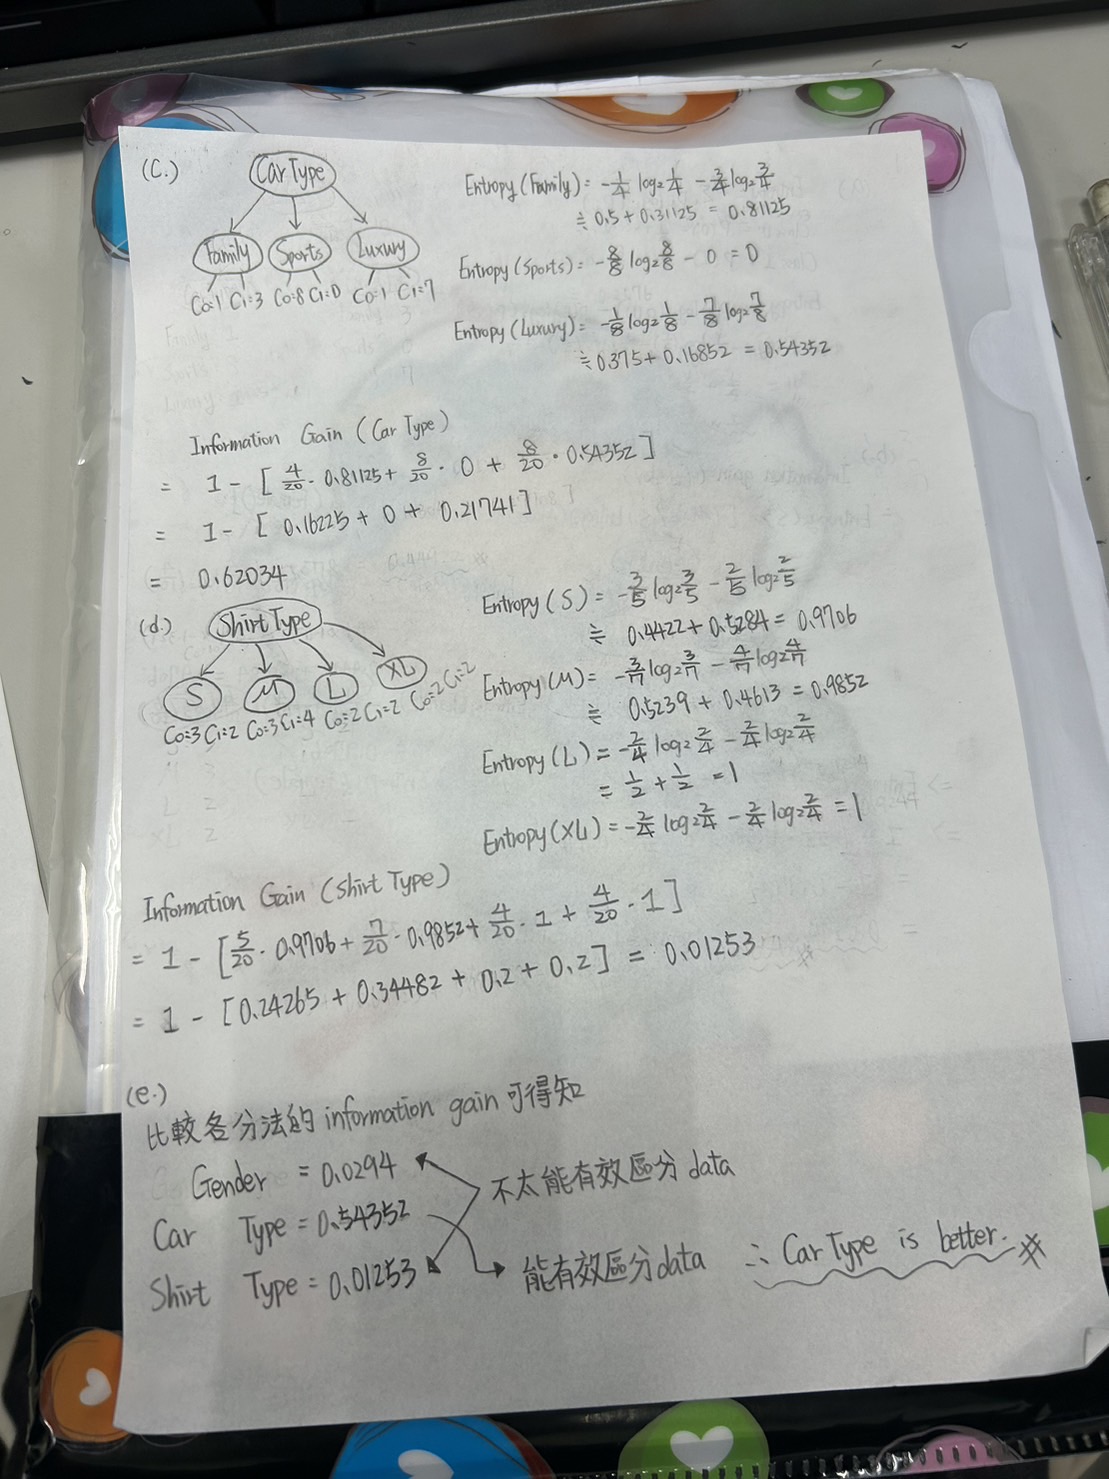 (C.)
Car Type
Family Sports Luxury
C0=1 C1=3 C0=8 C1=0 C0=1 C1=7
Entropy (Family) = -1/4 log2 1/4 - 3/4 log2 3/4
≒ 0.5 + 0.31125 = 0.81125
Entropy (Sports) = -8/8 log2 8/8 - 0 = 0
Entropy (Luxury) = -1/8 log2 1/8 - 7/8 log2 7/8
≒ 0.375 + 0.16852 = 0.54352
Information Gain (Car Type)
= 1 - [ 4/20 · 0.81125 + 8/20 · 0 + 8/20 · 0.54352 ]
= 1 - [ 0.16225 + 0 + 0.21741 ]
= 0.62034
(d.)
Shirt Type
S M L XL
C0=3 C1=2 C0=3 C1=4 C0=2 C1=2 C0=2 C1=2
Entropy (S) = -3/5 log2 3/5 - 2/5 log2 2/5
≒ 0.4422 + 0.5284 = 0.9706
Entropy (M) = -3/7 log2 3/7 - 4/7 log2 4/7
≒ 0.5239 + 0.4613 = 0.9852
Entropy (L) = -2/4 log2 2/4 - 2/4 log2 2/4
= 1/2 + 1/2 = 1
Entropy (XL) = -2/4 log2 2/4 - 2/4 log2 2/4 = 1
Information Gain (Shirt Type)
= 1 - [ 5/20 · 0.9706 + 7/20 · 0.9852 + 4/20 · 1 + 4/20 · 1 ]
= 1 - [ 0.24265 + 0.34482 + 0.2 + 0.2 ] = 0.01253
(e.)
比較各分法的 information gain 可得知
Gender = 0.0294
不太能有效區分 data
Car Type = 0.54352
Shirt Type = 0.01253
能有效區分 data ∴ Car Type is better. #